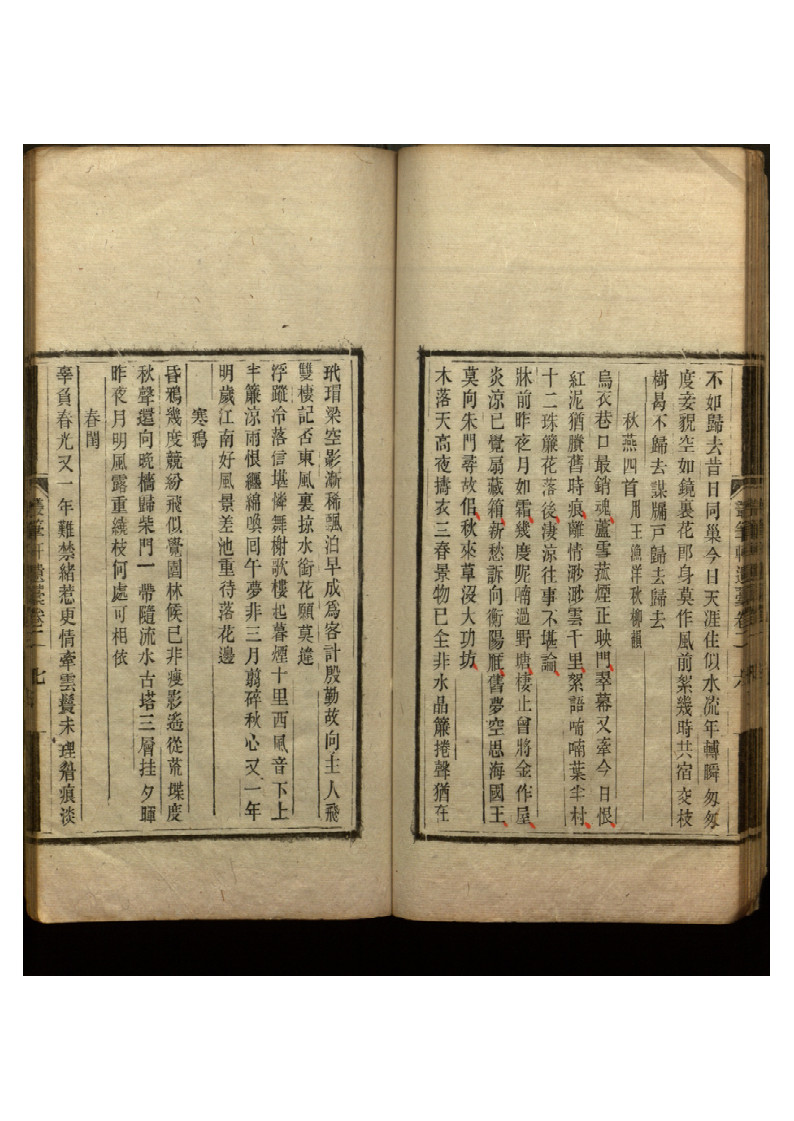 不如歸去昔日同巢今日天涯住似水流年轉瞬匆匆
度妾貌空如鏡裏花郎身莫作風前絮幾時共宿交枝
樹曷不歸去謀牖戸歸去歸去
秋燕四首用王漁洋秋柳韻
烏衣巷口最銷魂蘆雪菰煙正映門翠幕又牽今日恨
紅泥猶賸舊時痕離情渺渺雲千里絮語喃喃葉半村
十二珠簾花落後淒涼往事不堪論
牀前昨夜月如霜幾度呢喃過野塘棲止曾將金作屋
炎涼已覺扇藏箱新愁訴向衡陽雁舊夢空思海國王
莫向朱門尋故侶秋來草沒大功坊
木落天高夜擣衣三春景物已全非水晶簾捲聲猶在
玳瑁梁空影漸稀飄泊早成爲客計殷勤故向主人飛
雙棲記否東風裏掠水銜花願莫違
浮蹤冷落信堪憐舞榭歌樓起暮煙十里西風音下上
半簾涼雨恨纏綿喚回午夢非三月翦碎秋心又一年
明歲江南好風景差池重待落花邊
寒鴉
昏鴉幾度競紛飛似覺園林候已非瘦影遙從荒堞度
秋聲還向晚檣歸柴門一帶隨流水古塔三層挂夕暉
昨夜月明風露重繞枝何處可相依
春閨
辜負春光又一年難禁緒惹更情牽雲鬟未理黛痕淡